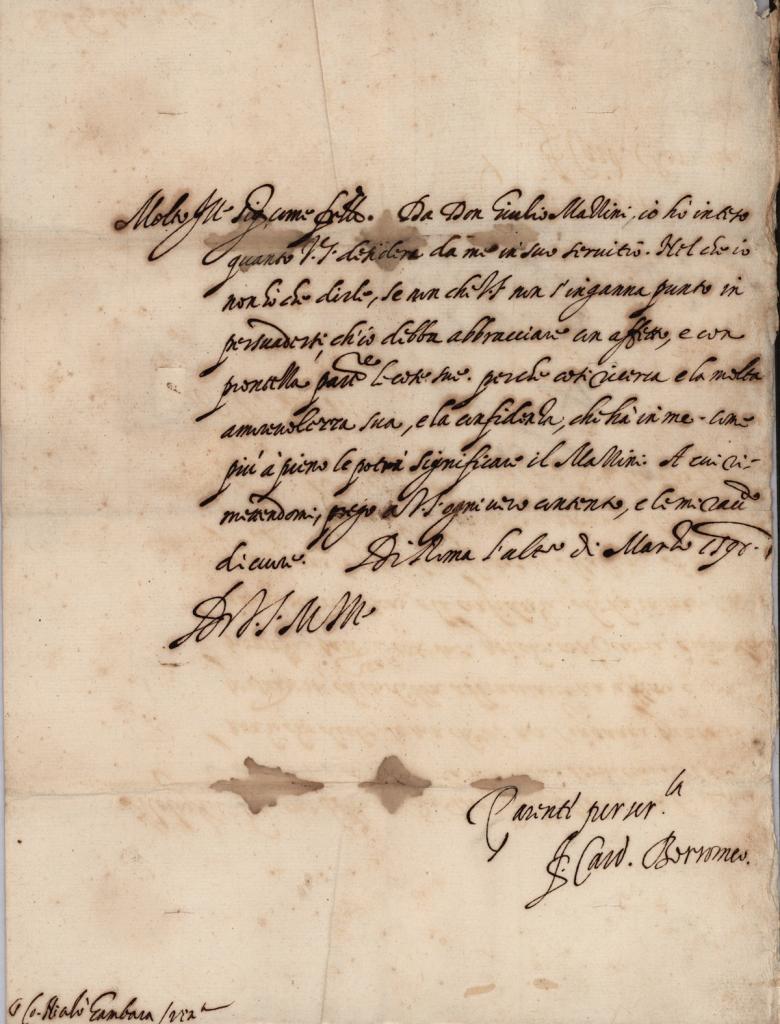 Molto Ill.re Sig.r come fratello. Da Don Giulio Mallini, io hò inteso
quanto V.S. desidera da me in suo servitio. Nel che io
non hò che dirle, se non che V.S. non s'inganna punto in
persuadersi ch'io debba abbracciare con affetto, e con
prontezza le cose sue. perche così ricerca e la molta
amorevolezza sua, e la confidenza, che hà in me. come
più à pieno le potrà significare il Mallini. A cui ri-
mettendomi, prego à V.S. ogni vero contento, e le mi racc.do
di cuore. Di Roma l'alto di Marzo
Di V.S. M. Ill.re
Parente per ser.la
F. Card. Borromeo.
Co. Gambara